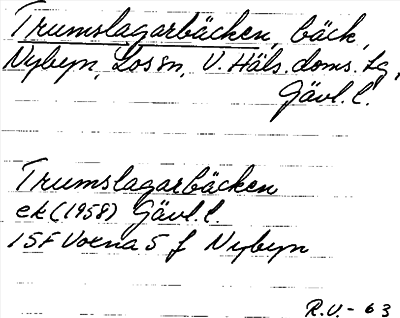 Trumslagarbäcken, bäck,
Nybyn, Los sn, V. Häls. doms. lg,
Gävl. l.
Trumslagarbäcken
ek (1958) Gävl. l.
15F Voxna 5 f Nybyn
R.U. - 63